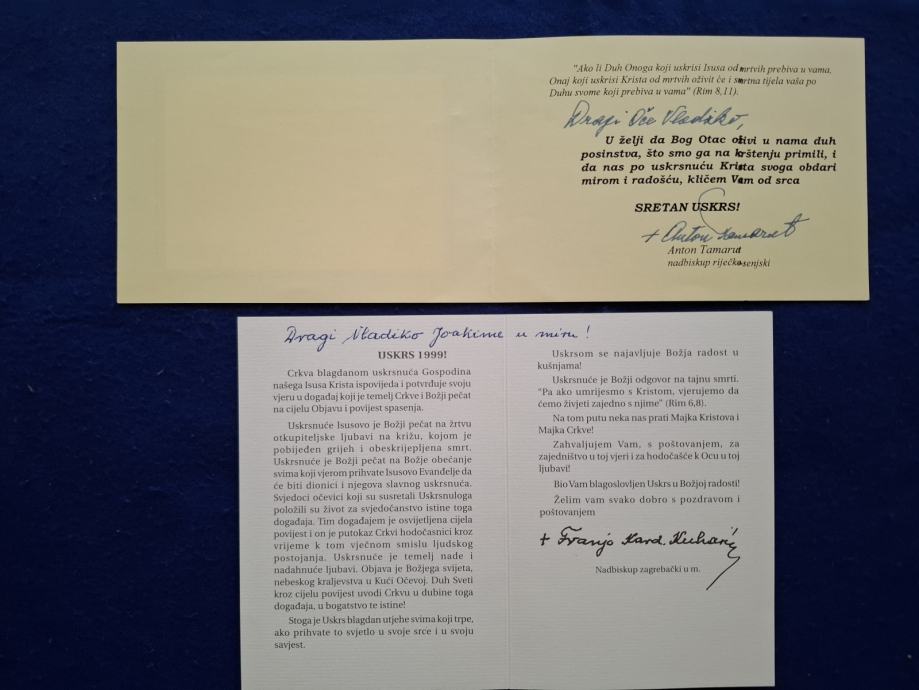 "Ako li Duh Onoga koji uskrisi Isusa od mrtvih prebiva u vama,
Onaj koji uskrisi Krista od mrtvih oživit će i smrtna tijela vaša po
Duhu svome koji prebiva u vama" (Rim 8,11).
Dragi Oče Vladiko,
U želji da Bog Otac oživi u nama duh
posinstva, što smo ga na krštenju primili, i
da nas po uskrsnuću Krista svoga obdari
mirom i radošću, kličem Vam od srca
SRETAN USKRS!
+ Anton Tamarut
Anton Tamarut
nadbiskup riječko-senjski
Dragi Vladiko Joakime u miru!
USKRS 1999!
Crkva blagdanom uskrsnuća Gospodina
našega Isusa Krista ispovijeda i potvrđuje svoju
vjeru u događaj koji je temelj Crkve i Božji pečat
na cijelu Objavu i povijest spasenja.
Uskrsnuće Isusovo je Božji pečat na žrtvu
otkupiteljske ljubavi na križu, kojom je
pobijeđen grijeh i obeskrijepljena smrt.
Uskrsnuće je Božji pečat na Božje obećanje
svima koji vjerom prihvate Isusovo Evanđelje da
će biti dionici i njegova slavnog uskrsnuća.
Svjedoci očevici koji su susretali Uskrsnuloga
položili su život za svjedočanstvo istine toga
događaja. Tim događajem je osvijetljena cijela
povijest i on je putokaz Crkvi hodočasnici kroz
vrijeme k tom vječnom smislu ljudskog
postojanja. Uskrsnuće je temelj nade i
nadahnuće ljubavi. Objava je Božjega svijeta,
nebeskog kraljevstva u Kući Očevoj. Duh Sveti
kroz cijelu povijest uvodi Crkvu u dubine toga
događaja, u bogatstvo te istine!
Stoga je Uskrs blagdan utjehe svima koji trpe,
ako prihvate to svjetlo u svoje srce i u svoju
savjest.
Uskrsom se najavljuje Božja radost u
kušnjama!
Uskrsnuće je Božji odgovor na tajnu smrti.
"Pa ako umrijesmo s Kristom, vjerujemo da
ćemo živjeti zajedno s njime" (Rim 6,8).
Na tom putu neka nas prati Majka Kristova i
Majka Crkve!
Zahvaljujem Vam, s poštovanjem, za
zajedništvo u toj vjeri i za hodočašće k Ocu u toj
ljubavi!
Bio Vam blagoslovljen Uskrs u Božjoj radosti!
Želim vam svako dobro s pozdravom i
poštovanjem
+ Franjo Kard. Kuharić
Nadbiskup zagrebački u m.